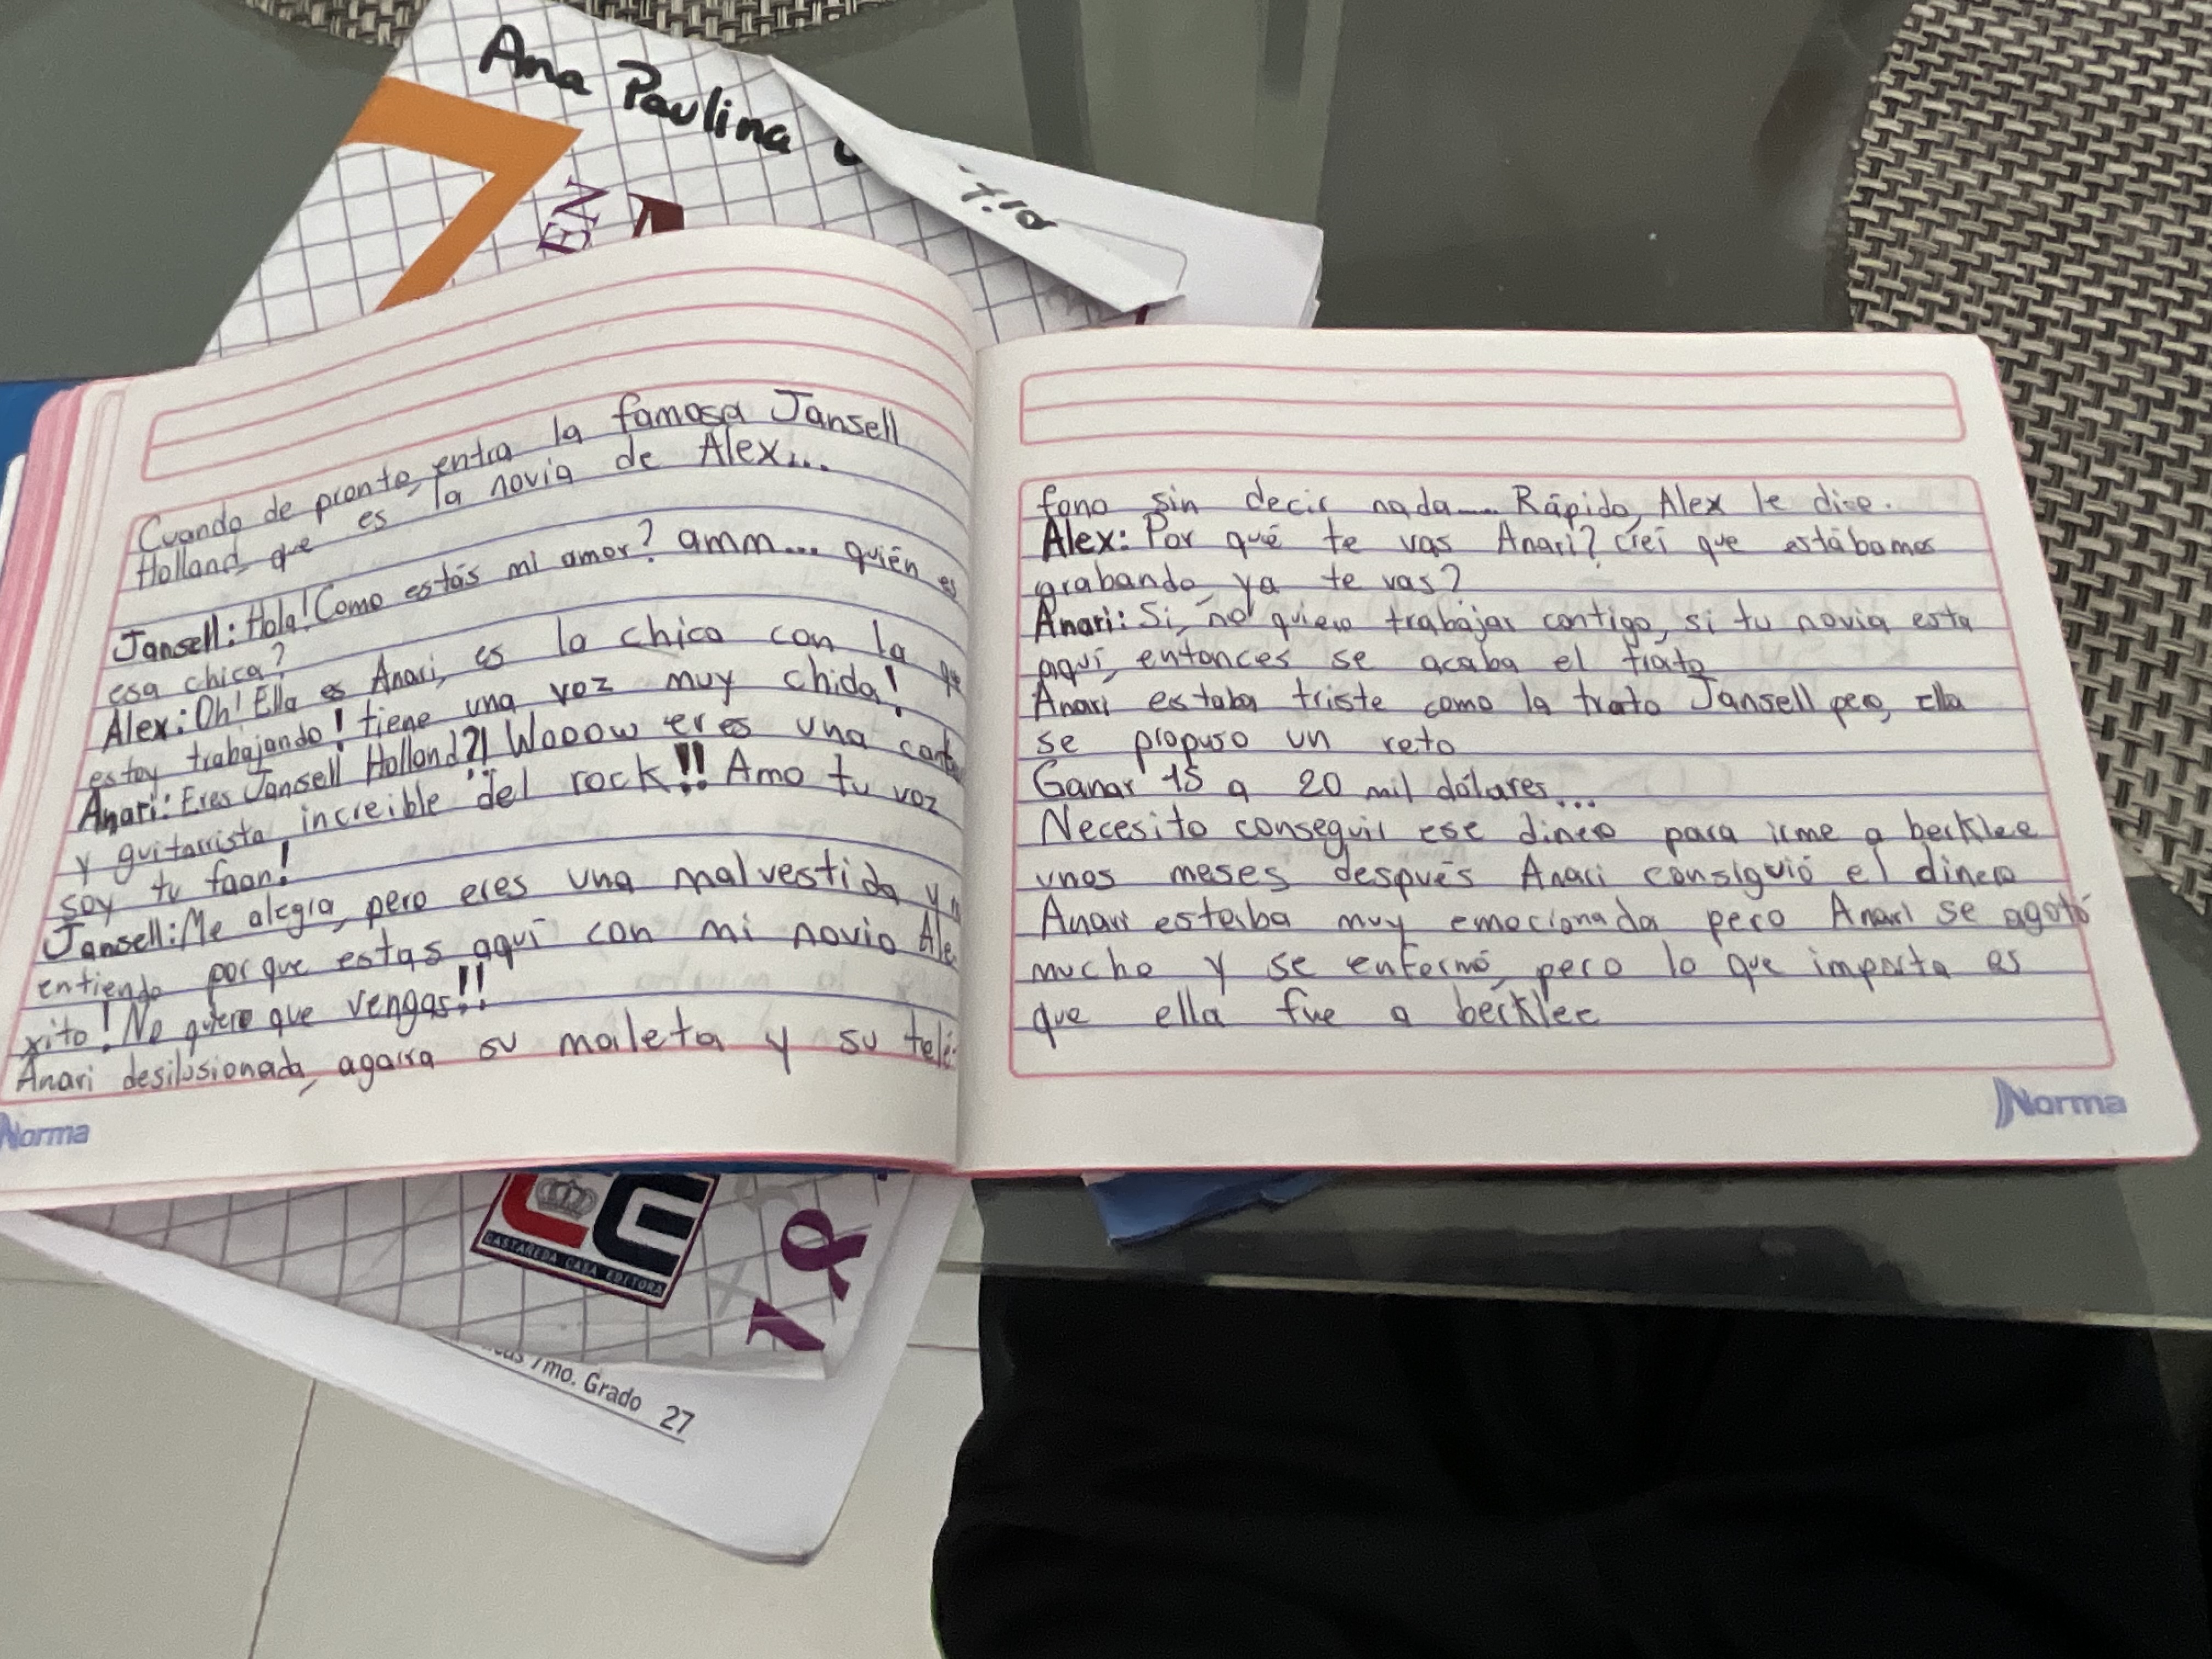 Ana Paulina
EN
Cuando de pronto, entra la famosa Jansell
Holland, que es la novia de Alex...
Jansell: Hola! Como estás mi amor? amm... quién es
esa chica?
Alex: Oh! Ella es Anari, es la chica con la que
estoy trabajando! tiene una voz muy chida!
Anari: Eres Jansell Holland?! Wooow eres una
y guitarrista increible del rock!! Amo tu voz
soy tu faan!
Jansell: Me alegra, pero eres una malvestida y
entiendo porque estas aquí con mi novio Ale
xito! No quiero que vengas!!
Anari desilusionada, agarra su maleta y su telé-
Norma
fono sin decir nada.... Rápido, Alex le dice.
Alex: Por qué te vas Anari? creí que estábamos
grabando, ya te vas?
Anari: Si, no quiero trabajar contigo, si tu novia esta
aquí, entonces se acaba el trato
Anari estaba triste como la trato Jansell pero, ella
se propuso un reto
Ganar 15 a 20 mil dólares...
Necesito conseguir ese dinero para irme a berklee
unos meses después Anari consiguió el dinero
Anari estaba muy emocionada pero Anari se agotó
mucho y se enfermó, pero lo que importa es
que ella fue a berklee
Norma
CE
CASTAÑEDA CASA EDITORA
7mo. Grado 27